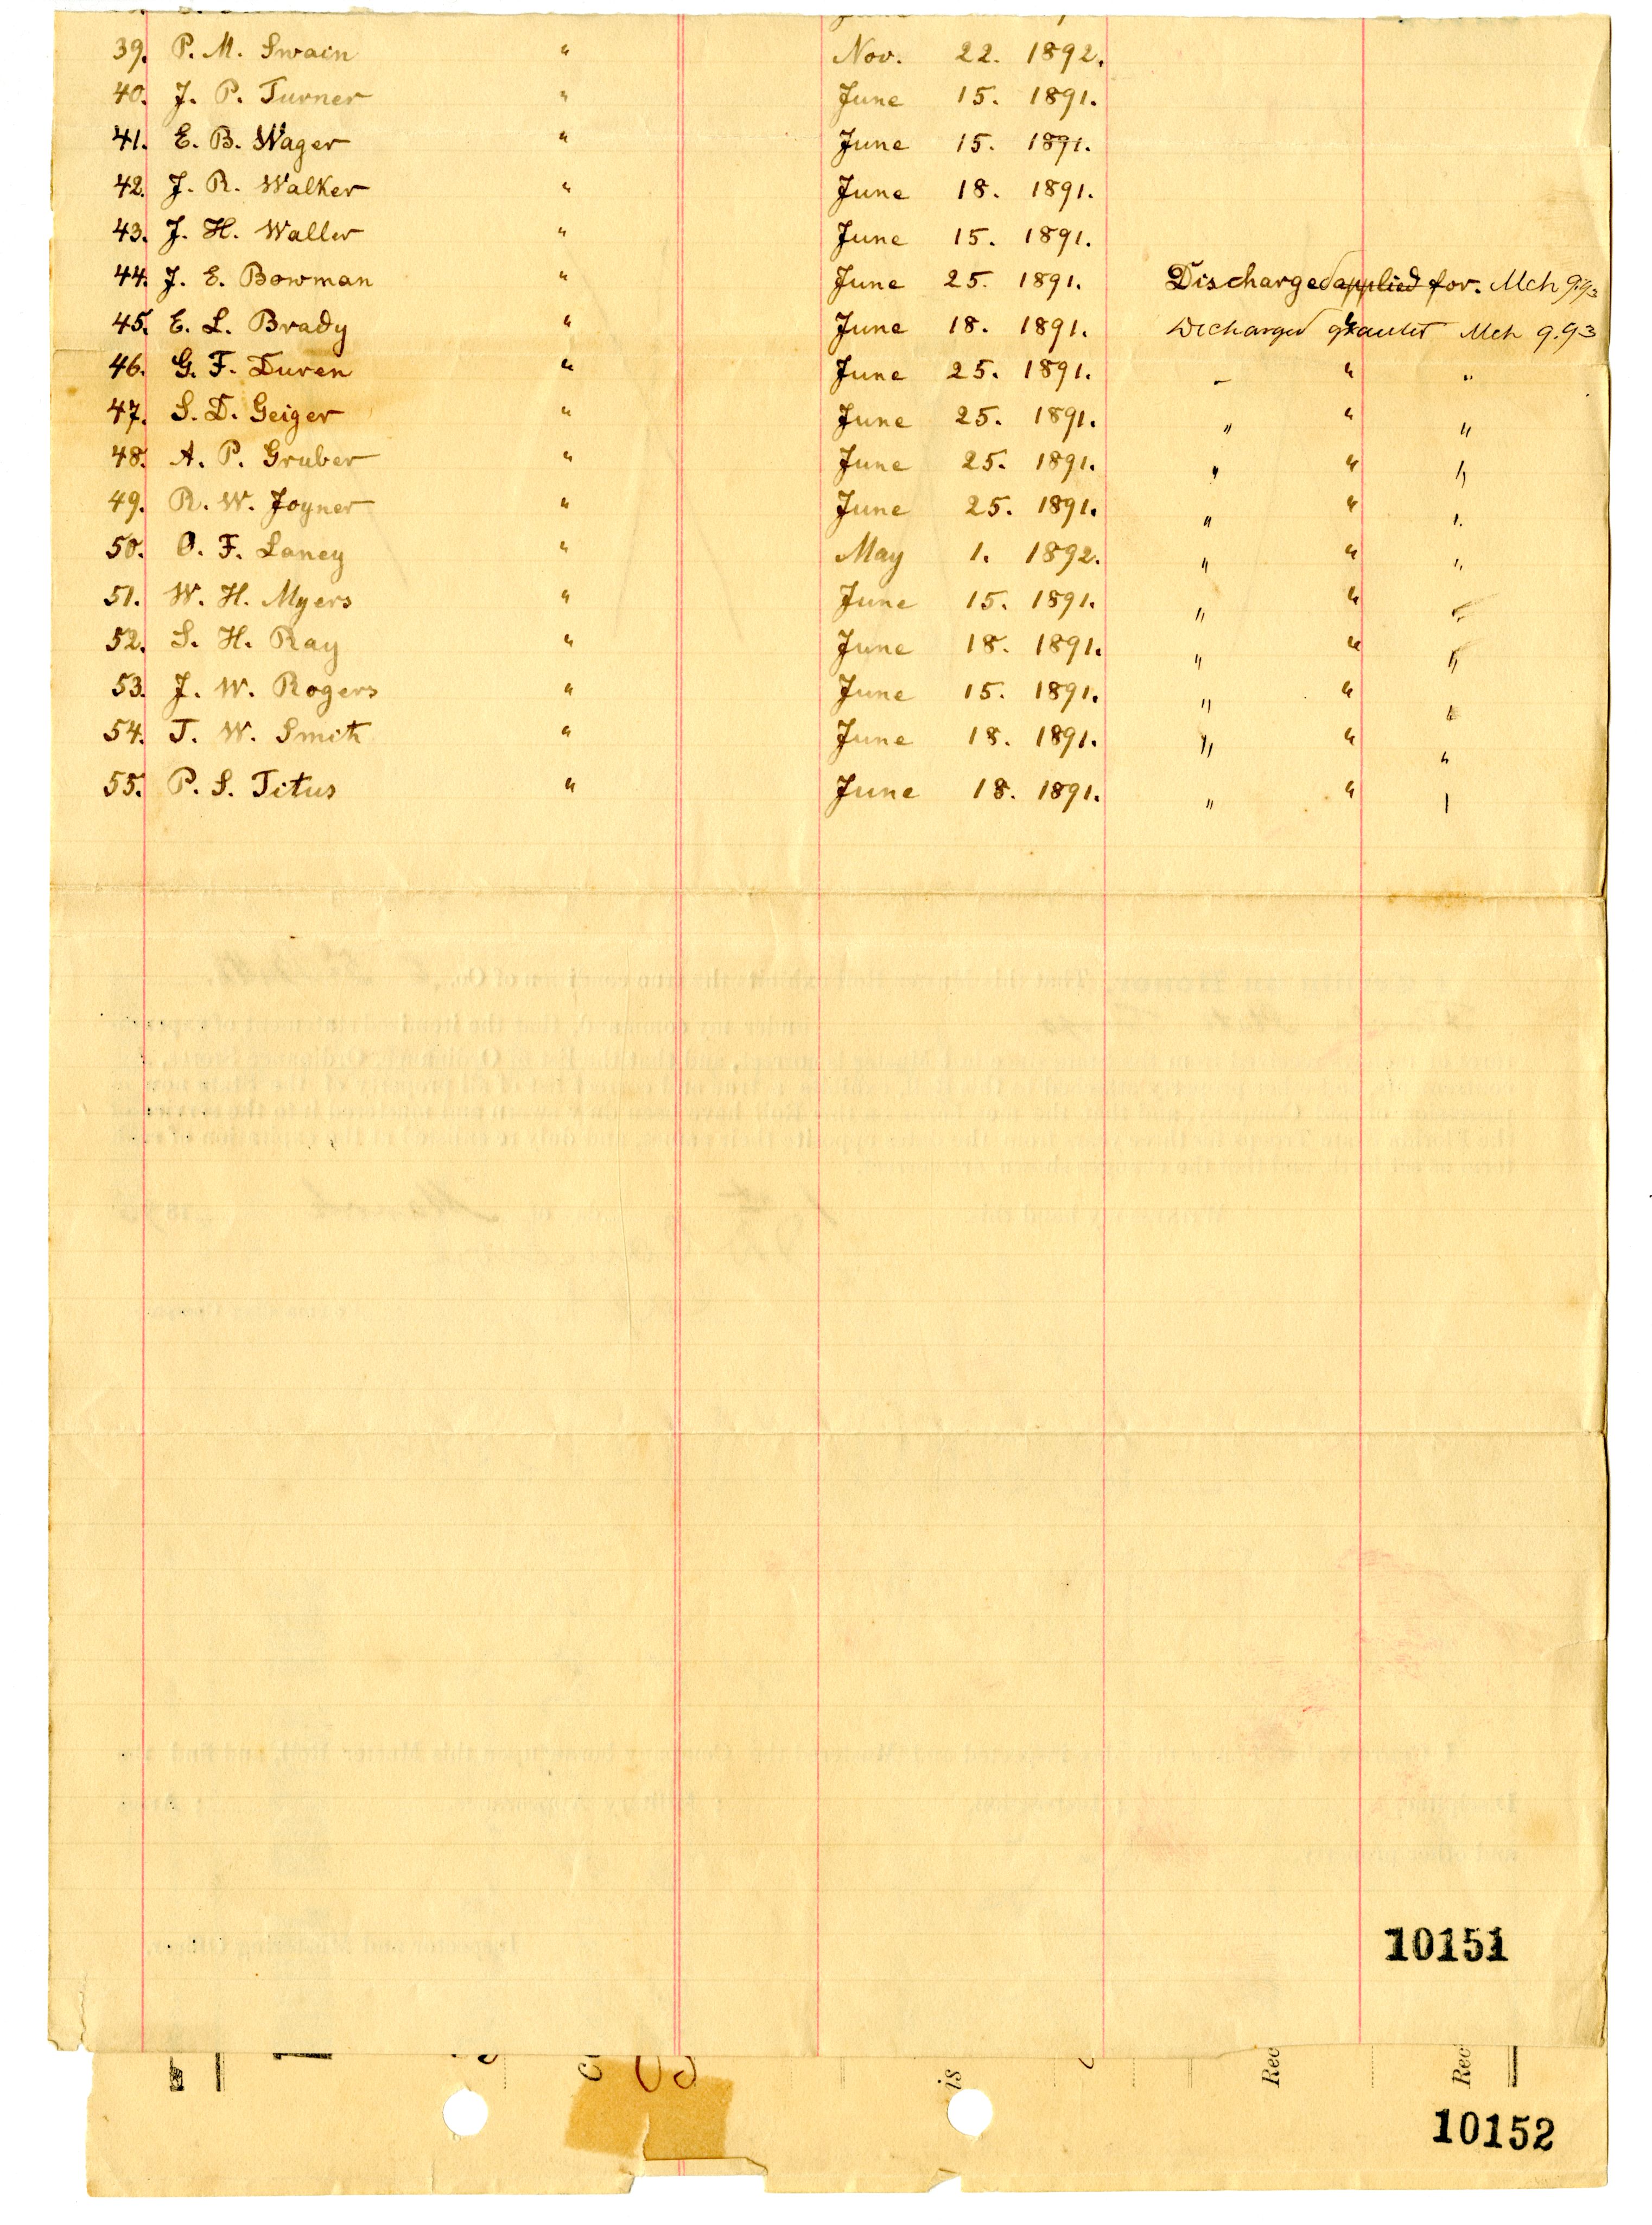 39. P. M. Swain " Nov. 22. 1892.
40. J. P. Turner " June 15. 1891.
41. E. B. Wager " June 15. 1891.
42. J. R. Walker " June 18. 1891.
43. J. H. Waller " June 15. 1891.
44. J. E. Bowman " June 25. 1891. Discharged applied for. Mch 9.93
45. E. L. Brady " June 18. 1891. Discharged granted Mch 9.93
46. G. F. Duren " June 25. 1891. " " "
47. S. D. Geiger " June 25. 1891. " " "
48. A. P. Gruber " June 25. 1891. " " "
49. R. W. Joyner " June 25. 1891. " " "
50. O. F. Laney " May 1. 1892. " " "
51. W. H. Myers " June 15. 1891. " " "
52. S. H. Ray " June 18. 1891. " " "
53. J. W. Rogers " June 15. 1891. " " "
54. T. W. Smith " June 18. 1891. " " "
55. P. S. Titus " June 18. 1891. " " "
10151
is Rec Rec
10152